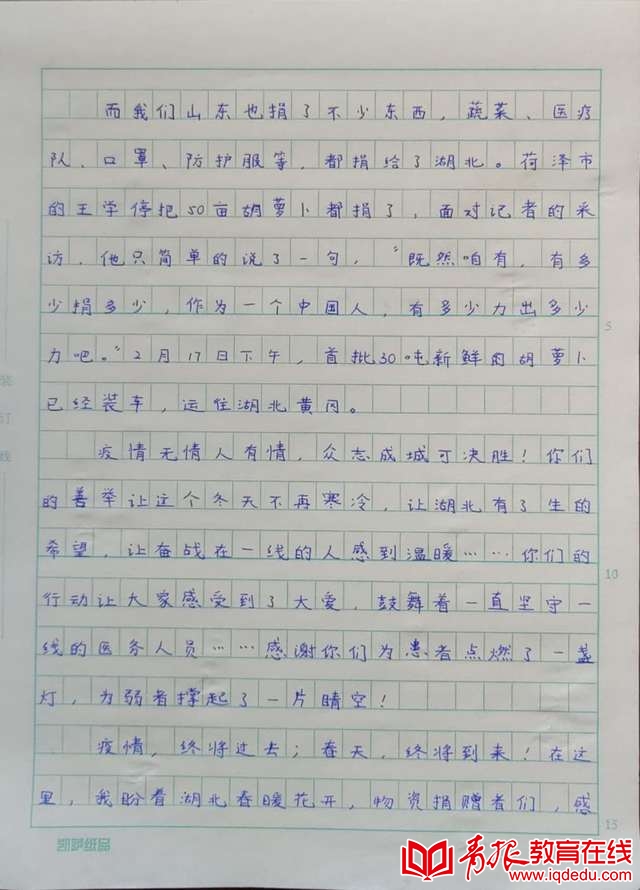 而我们山东也捐了不少东西，蔬菜、医疗
队、口罩、防护服等，都捐给了湖北。荷泽市
的王学停把50亩胡萝卜都捐了，面对记者的采
访，他只简单的说了一句，“既然咱有，有多
少捐多少，作为一个中国人，有多少力出多少
力吧。”2月17日下午，首批30吨新鲜的胡萝卜
已经装车，运往湖北黄冈。
疫情无情人有情，众志成城可决胜！你们
的善举让这个冬天不再寒冷，让湖北有了生的
希望，让奋战在一线的人感到温暖……你们的
行动让大家感受到了大爱，鼓舞着一直坚守一
线的医务人员……感谢你们为患者点燃了一盏
灯，为弱者撑起了一片晴空！
疫情，终将过去；春天，终将到来！在这
里，我盼着湖北春暖花开，物资捐赠者们，感
5
10
15
装
订
线
凯萨纸品
青报教育在线
www.iqdedu.com